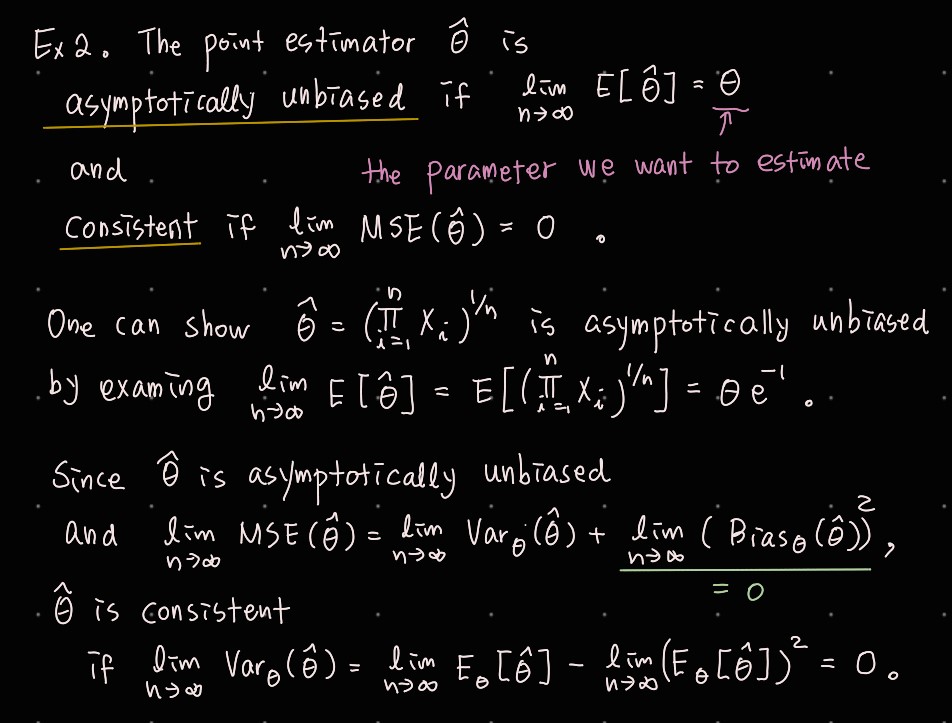 Ex 2. The point estimator θ̂ is
asymptotically unbiased if lim_{n→∞} E[θ̂] = θ
and the parameter we want to estimate
consistent if lim_{n→∞} MSE(θ̂) = 0 .
One can show θ̂ = (∏_{i=1}^{n} X_i)^{1/n} is asymptotically unbiased
by examing lim_{n→∞} E[θ̂] = E[(∏_{i=1}^{n} X_i)^{1/n}] = θ e^{-1} .
Since θ̂ is asymptotically unbiased
and lim_{n→∞} MSE(θ̂) = lim_{n→∞} Var_θ(θ̂) + lim_{n→∞} (Bias_θ(θ̂))^2 ,
= 0
θ̂ is consistent
if lim_{n→∞} Var_θ(θ̂) = lim_{n→∞} E_θ[θ̂] − lim_{n→∞} (E_θ[θ̂])^2 = 0 .